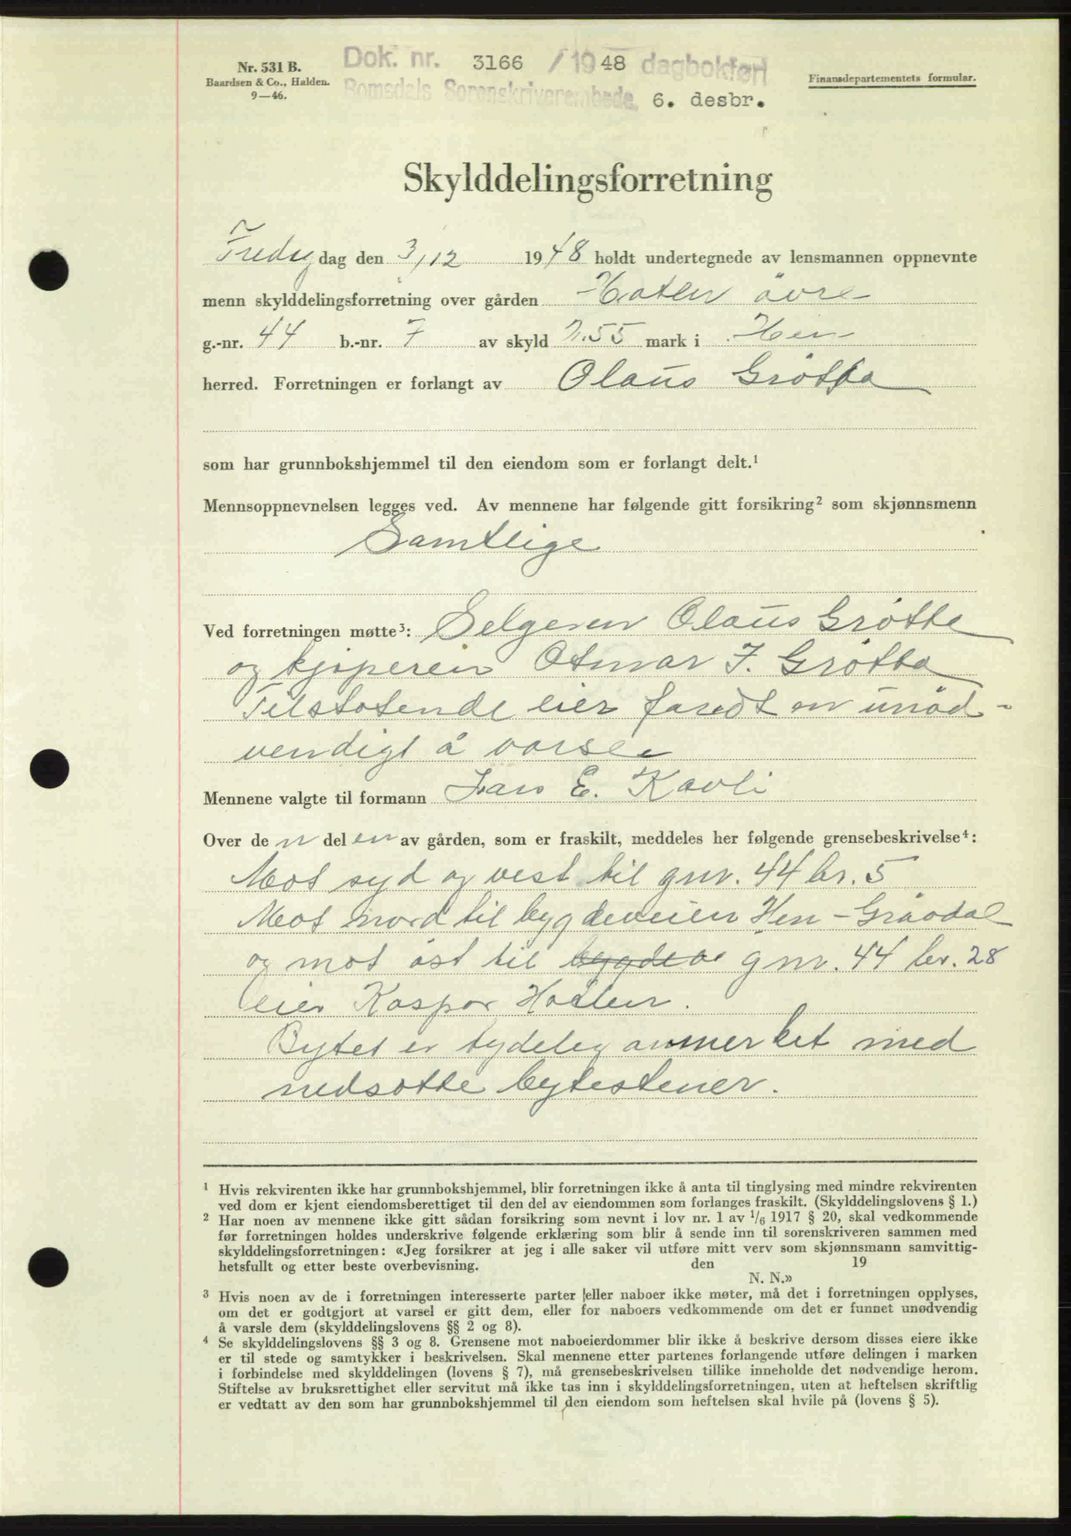 Nr. 531 B.
Baardsen & Co., Halden.
9—46.
Dok. nr. 3166 /1948 dagbokført
Romsdals Sorenskriverembede 6. desbr.
Finansdepartementets formular.
Skylddelingsforretning
Fredag den 3/12 1948 holdt undertegnede av lensmannen oppnevnte
menn skylddelingsforretning over gården Hatlen øvre
g.-nr. 44 b.-nr. 7 av skyld 2.55 mark i Hen
herred. Forretningen er forlangt av Olaus Grøtta
som har grunnbokshjemmel til den eiendom som er forlangt delt.¹
Mennsoppnevnelsen legges ved. Av mennene har følgende gitt forsikring² som skjønnsmenn
Samtlige
Ved forretningen møtte³: Selgeren Olaus Grøtta
og kjøperen Otmar J. Grøtta
Tilstøtende eier fandt en unød-
vendigt å varsle
Mennene valgte til formann Lars E. Kavli
Over de n del en av gården, som er fraskilt, meddeles her følgende grensebeskrivelse⁴:
Mot syd og vest til gnr. 44 br. 5
Mot nord til bygdeveien Hen - Gråodal
og mot øst til gnr. 44 br. 28
eier Kaspar Hatlen.
Bytet er tydeleg anmerket med
nedsatte bytestener.
¹ Hvis rekvirenten ikke har grunnbokshjemmel, blir forretningen ikke å anta til tinglysing med mindre rekvirenten
ved dom er kjent eiendomsberettiget til den del av eiendommen som forlanges fraskilt. (Skylddelingslovens § 1.)
² Har noen av mennene ikke gitt sådan forsikring som nevnt i lov nr. 1 av 1/6 1917 § 20, skal vedkommende
før forretningen holdes underskrive følgende erklæring som blir å sende inn til sorenskriveren sammen med
skylddelingsforretningen: «Jeg forsikrer at jeg i alle saker vil utføre mitt verv som skjønnsmann samvittig-
hetsfullt og etter beste overbevisning. den 19
N. N.»
³ Hvis noen av de i forretningen interesserte parter eller naboer ikke møter, må det i forretningen opplyses,
om det er godtgjort at varsel er gitt dem, eller for naboers vedkommende om det er funnet unødvendig
å varsle dem (skylddelingslovens §§ 2 og 8).
⁴ Se skylddelingslovens §§ 3 og 8. Grensene mot naboeierdommer blir ikke å beskrive dersom disses eiere ikke
er til stede og samtykker i beskrivelsen. Skal mennene etter partenes forlangende utføre delingen i marken
i forbindelse med skylddelingen (lovens § 7), må grensebeskrivelsen tillike inneholde det nødvendige herom.
Stiftelse av bruksrettighet eller servitut må ikke tas inn i skylddelingsforretningen, uten at heftelsen skriftlig
er vedtatt av den som har grunnbokshjemmel til den eiendom som heftelsen skal hvile på (lovens § 5).